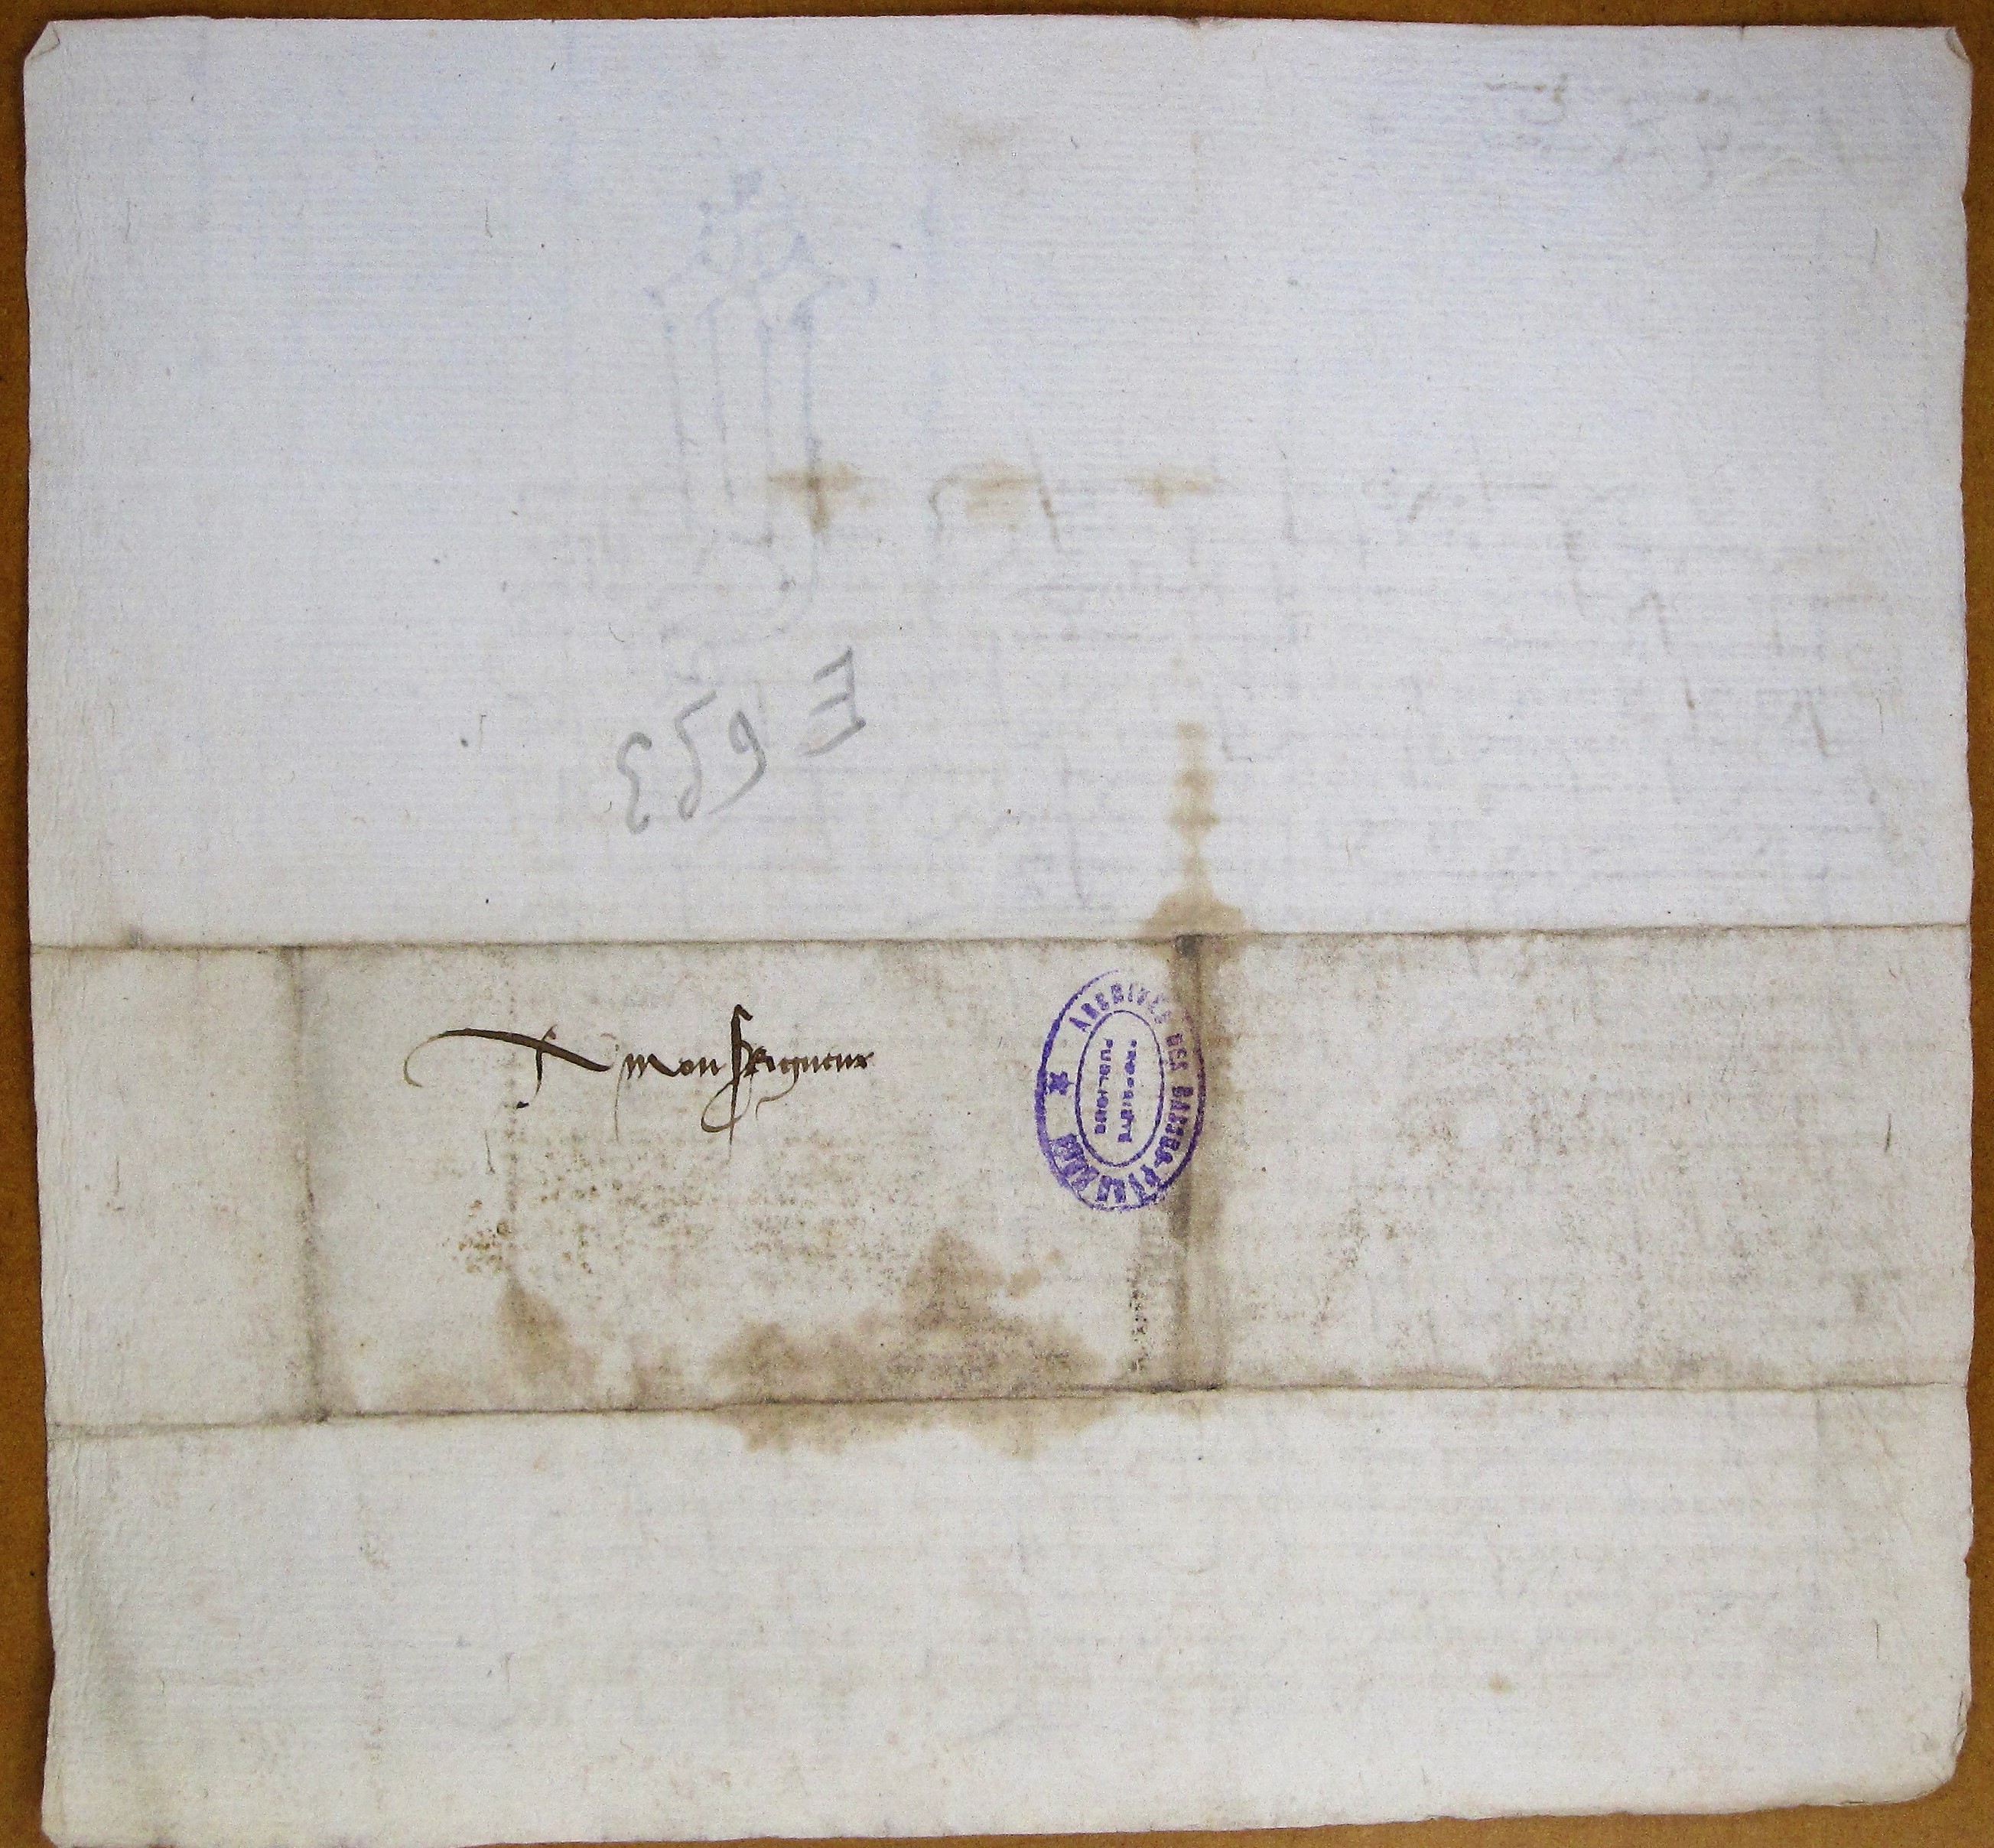 E 653
A Monseigneur
ARCHIVES DES BASSES-PYRÉNÉES
PROPRIÉTÉ
PUBLIQUE